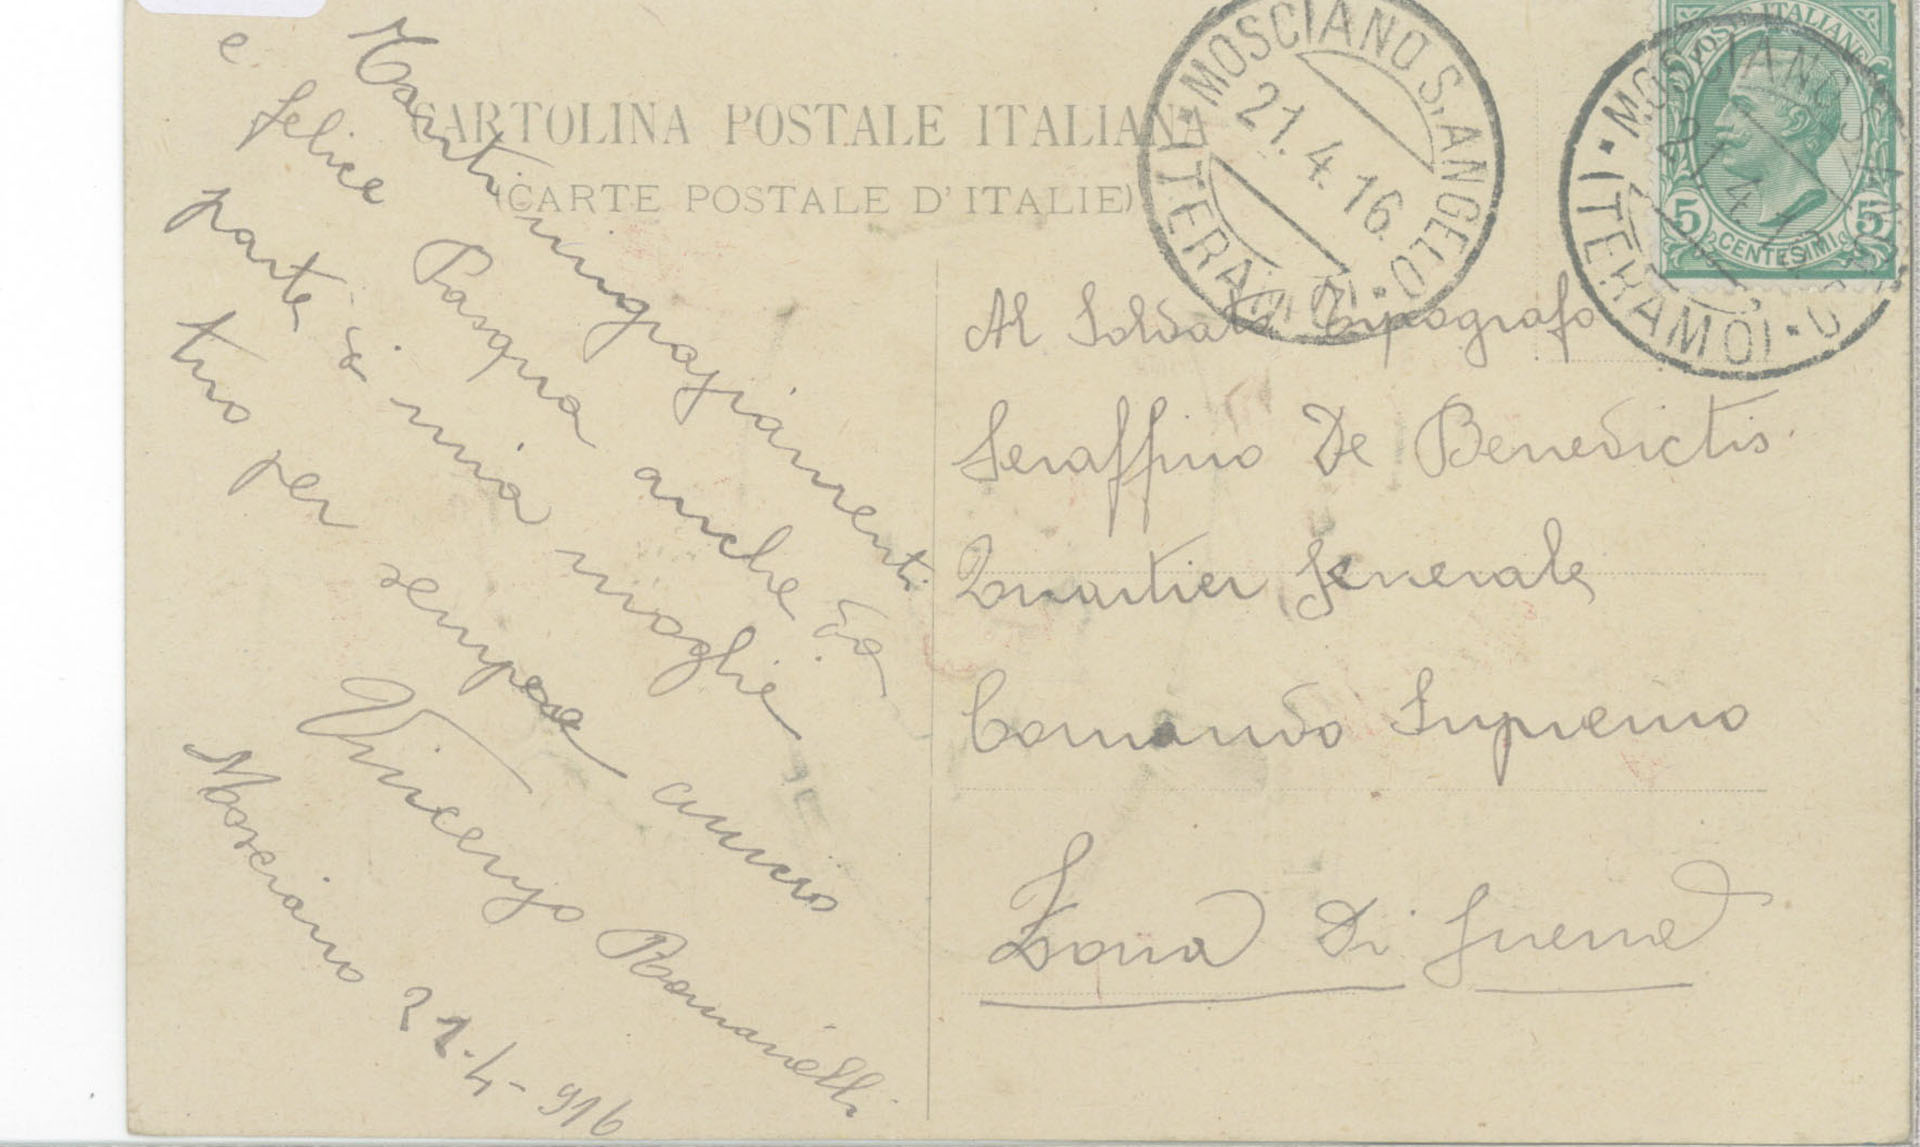 CARTOLINA POSTALE ITALIANA
(CARTE POSTALE D'ITALIE)
MOSCIANO S. ANGELO
21.4.16
(TERAMO)
POSTE ITALIANE
5 CENTESIMI 5
MOSCIANO S. ANGELO
21.4.16
(TERAMO)
Tanti ringraziamenti
e felice Pasqua anche da
parte di mia moglie
tuo per sempre amico
Vincenzo Romanelli
Mosciano 21-4-916
Al Soldato tipografo
Seraffino De Benedictis
Quartier Generale
Comando Supremo
Zona di guerra